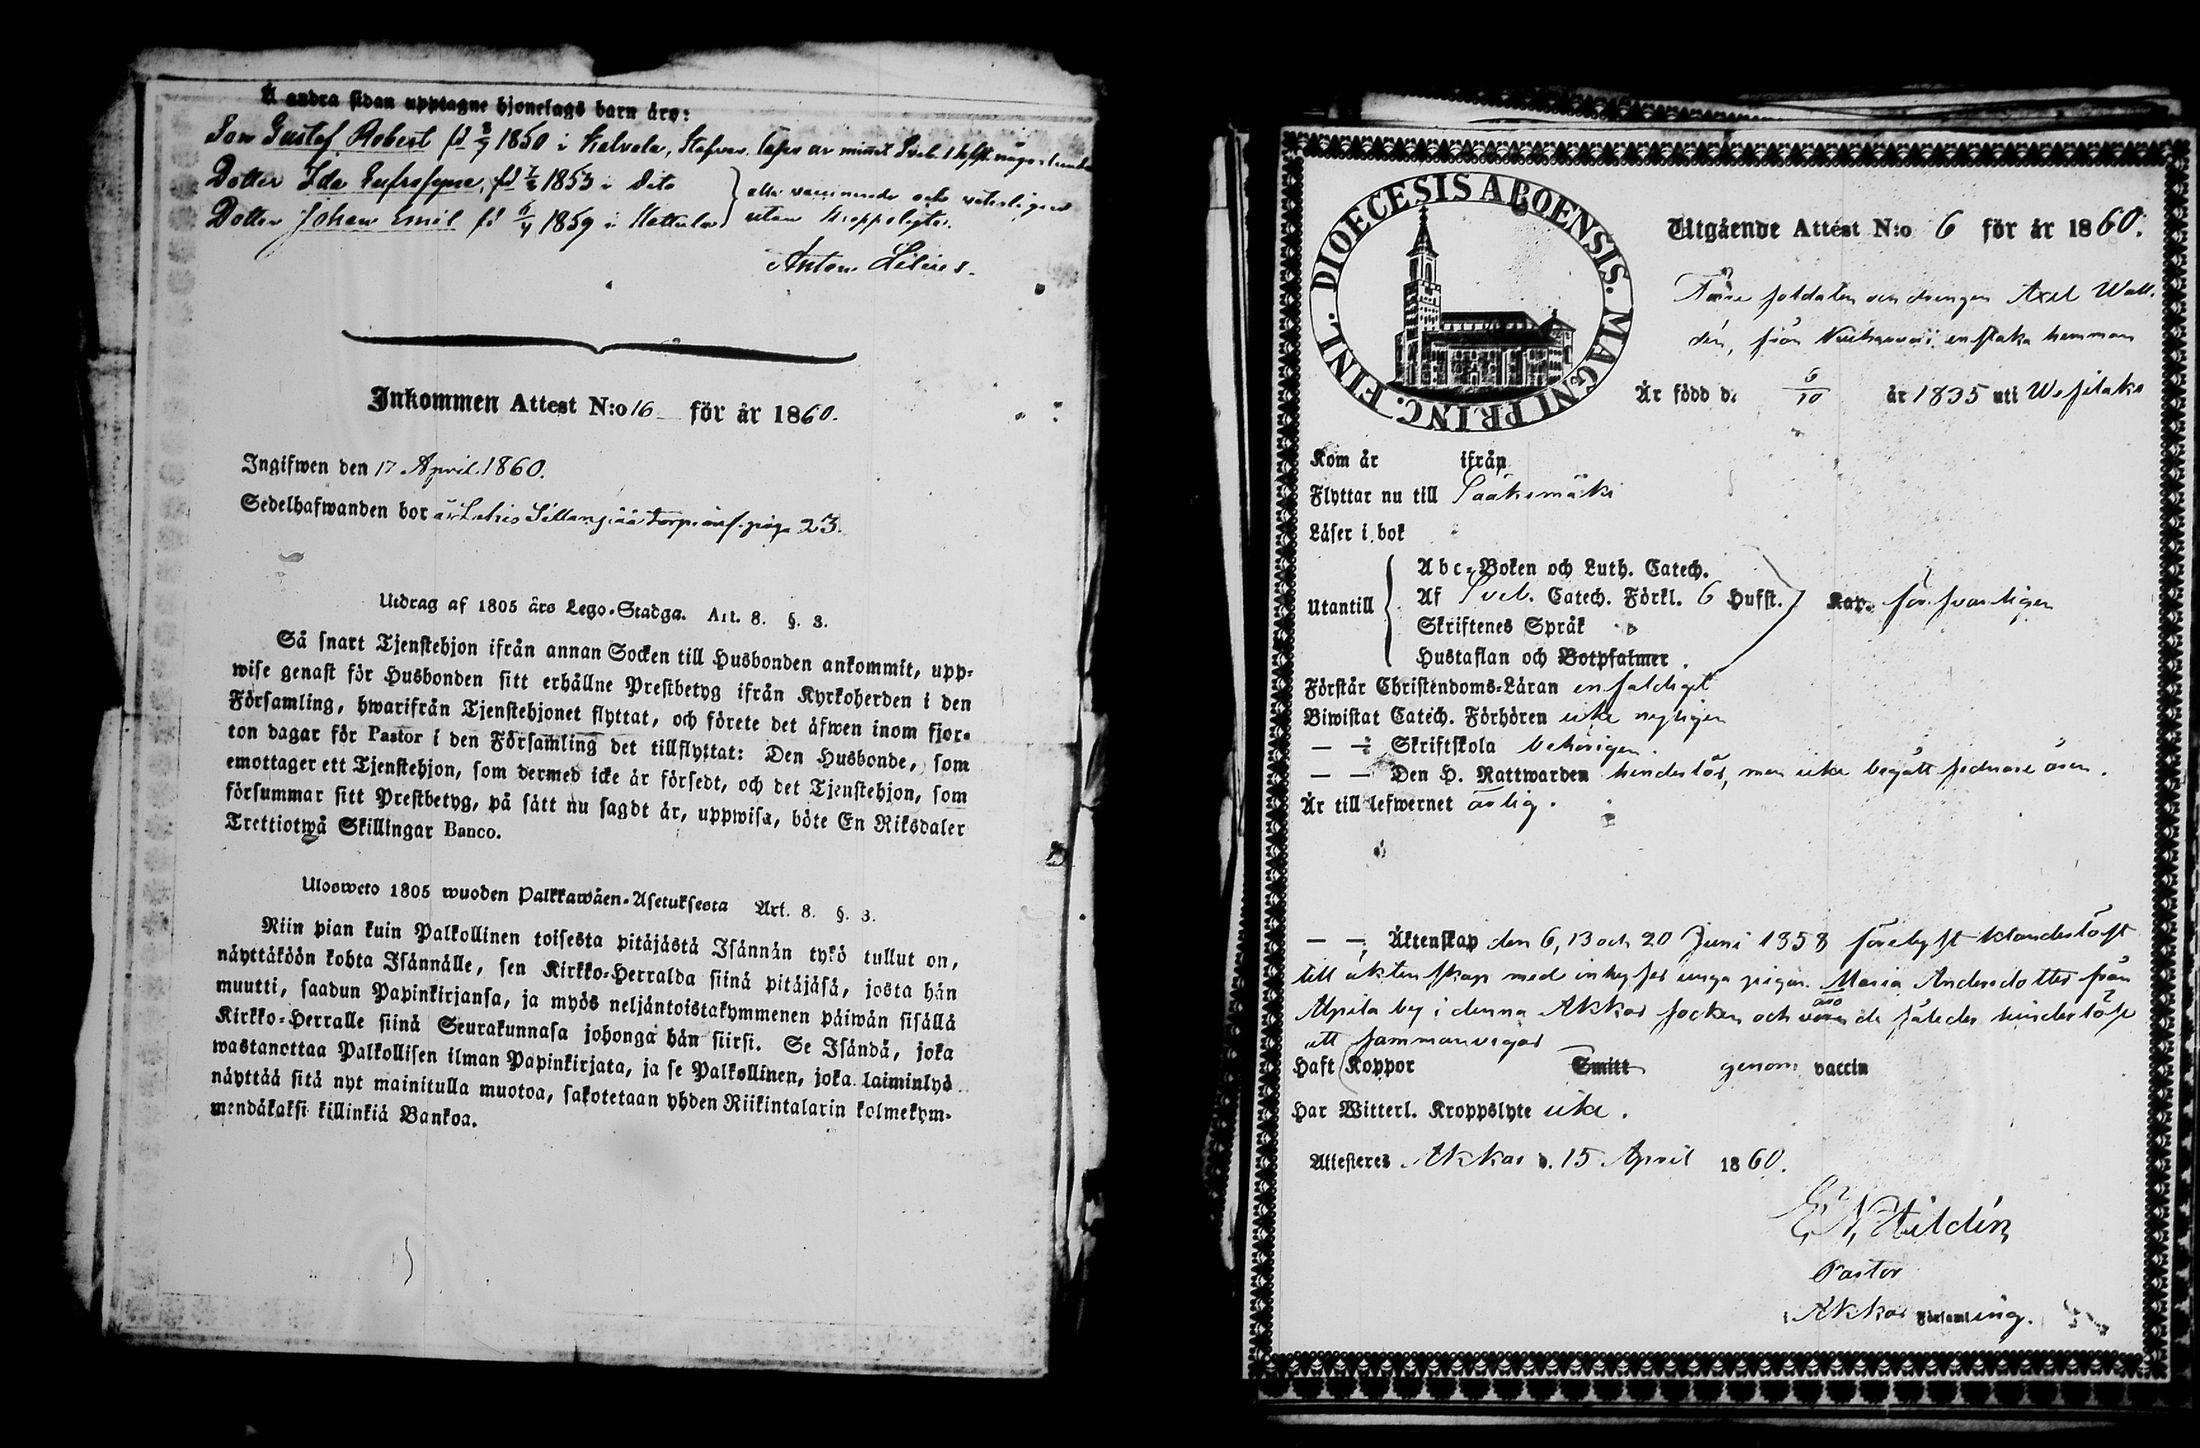 Å andra sidan upptagne hjonelags barn äro:
Son Gustef Robert fd 1850 i Kalvola,
Dotter Ida fd 1853 i dito
Dotter Johan Emil fd 1859 i Hattula
alla vaccinerade och
utan kroppslyte.
Anton Lilius.
Inkommen Attest N:o 16 för år 1860.
Ingifwen den 17 April 1860.
Sedelhafwanden bor å pag. 23.
Utdrag af 1805 års Lego-Stadga. Art. 8. §. 3.
Så snart Tjenstehjon ifrån annan Socken till Husbonden ankommit, upp-
wise genast för Husbonden sitt erhållne Prestbetyg ifrån Kyrkoherden i den
Församling, hwarifrån Tjenstehjonet flyttat, och förete det äfwen inom fjor-
ton dagar för Pastor i den Församling det tillflyttat: Den Husbonde, som
emottager ett Tjenstehjon, som dermed icke är försedt, och det Tjenstehjon, som
försummar sitt Prestbetyg, på sätt nu sagdt är, uppwisa, böte En Riksdaler
Trettiotwå Skillingar Banco.
Ulosweto 1805 wuoden Palkkawäen-Asetuksesta Art. 8. §. 3.
Niin pian kuin Palkollinen toisesta pitäjästä Isännän tykö tullut on,
näyttäköön kohta Isännälle, sen Kirkko-Herralda siinä pitäjäsä, josta hän
muutti, saadun Papinkirjansa, ja myös neljäntoistakymmenen päiwän sisällä
Kirkko-Herralle siinä Seurakunnasa johonga hän siirsi. Se Isändä, joka
wastanottaa Palkollisen ilman Papinkirjata, ja se Palkollinen, joka laiminlyö
näyttää sitä nyt mainitulla muotoa, sakotetaan yhden Riikintalarin kolmekym-
mendäkaksi killinkiä Bankoa.
DIOECESIS ABOENSIS. MAGNI PRINC. FINL.
Utgående Attest N:o 6 för år 1860.
soldaten och drengen Axel Wall-
dén, från enstaka hemman
Är född d. 6/10 år 1835 uti Wesilaks
Kom år ifrån
Flyttar nu till Sääksmäki
Läser i bok
Utantill
Abc-Boken och Luth. Catech.
Af Sveb. Catech. Förkl. 6 Hufst.
Skriftenes Språk
Hustaflan och Botpsalmer.
Kap. försvarligen
Förstår Christendoms-Läran enfaldigt
Biwistat Catech. Förhören icke nyligen
— — Skriftskola behörigen.
— — Den H. Nattwarden hinderlös, men icke begått sednare åren.
Är till lefwernet ärlig.
— — Äktenskap den 6, 13 och 20 Juni 1858 förelyst klanderlöst
till äktenskap med inhyses unga pigan Maria Andersdotter från
Alpila by i denna Akkas socken och äro de således hinderlöse
att sammanvigas
Haft Koppor Smitt genom vaccin
Har Witterl. Kroppslyte icke.
Attesteres Akkas d. 15 April 1860.
Hildén,
Pastor
i Akkas Församling.